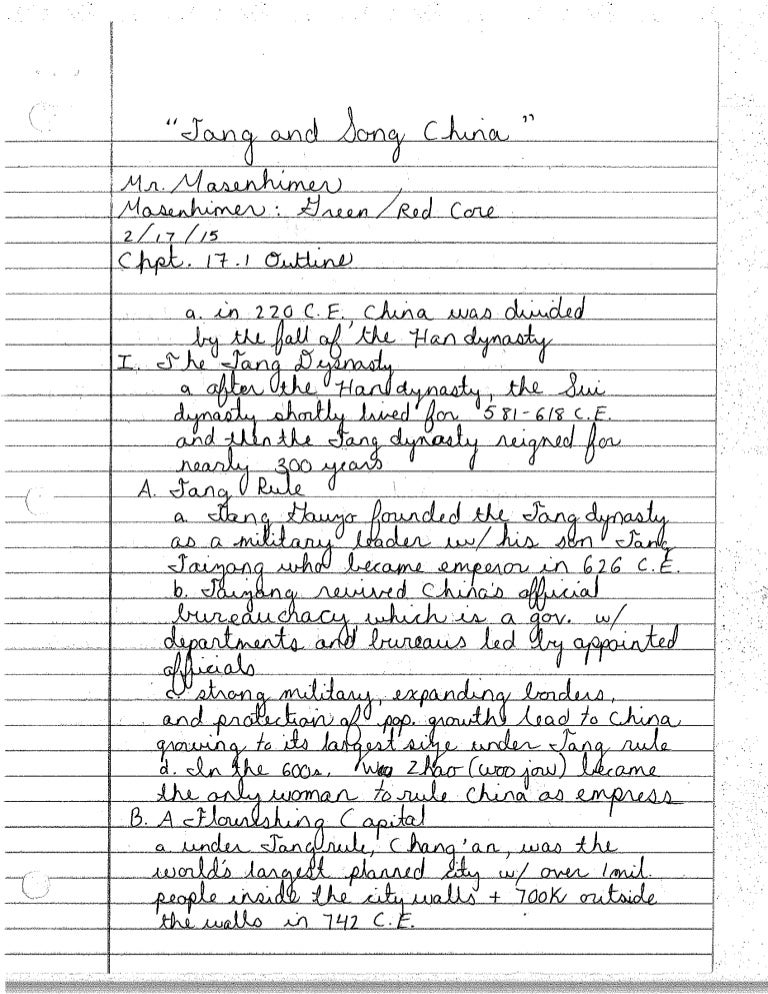 "Tang and Song China"
Mr. Masenhimer
Masenhimer: Green/Red Core
2/17/15
Chpt. 17.1 Outline
a. in 220 C.E., China was divided
by the fall of the Han dynasty
I. The Tang Dysnasty
a after the Han dynasty, the Sui
dynasty shortly lived for 581-618 C.E.
and then the Tang dynasty reigned for
nearly 300 years
A. Tang Rule
a. Tang Gauzo founded the Tang dynasty
as a military leader w/ his son Tang
Taizang who became emperor in 626 C.E.
b. Taizang revived China's official
bureauchacy, which is a gov. w/
departments and bureaus led by appointed
officials
c strong military, expanding borders,
and protection of pop. growth lead to China
growing to its largest size under Tang rule
d. In the 600s, Wu Zhao (woo jow) became
the only woman to rule China as empress
B. A Flourishing Capital
a under Tang rule, Chang'an, was the
world's largest planned city w/ over 1mil.
people inside the city walls + 700K outside
the walls in 742 C.E.